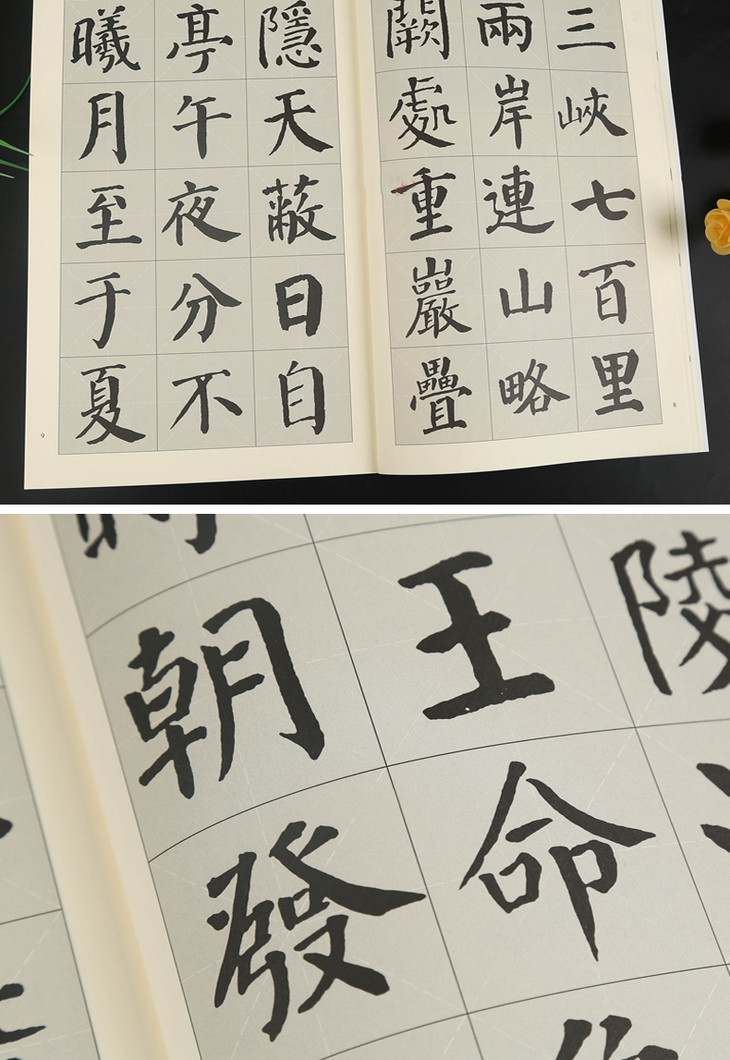 三峽七百里
兩岸連山略
闕處重巖疊
隱天蔽日自
亭午夜分不
曦月至于夏
9
陵
王命
朝發